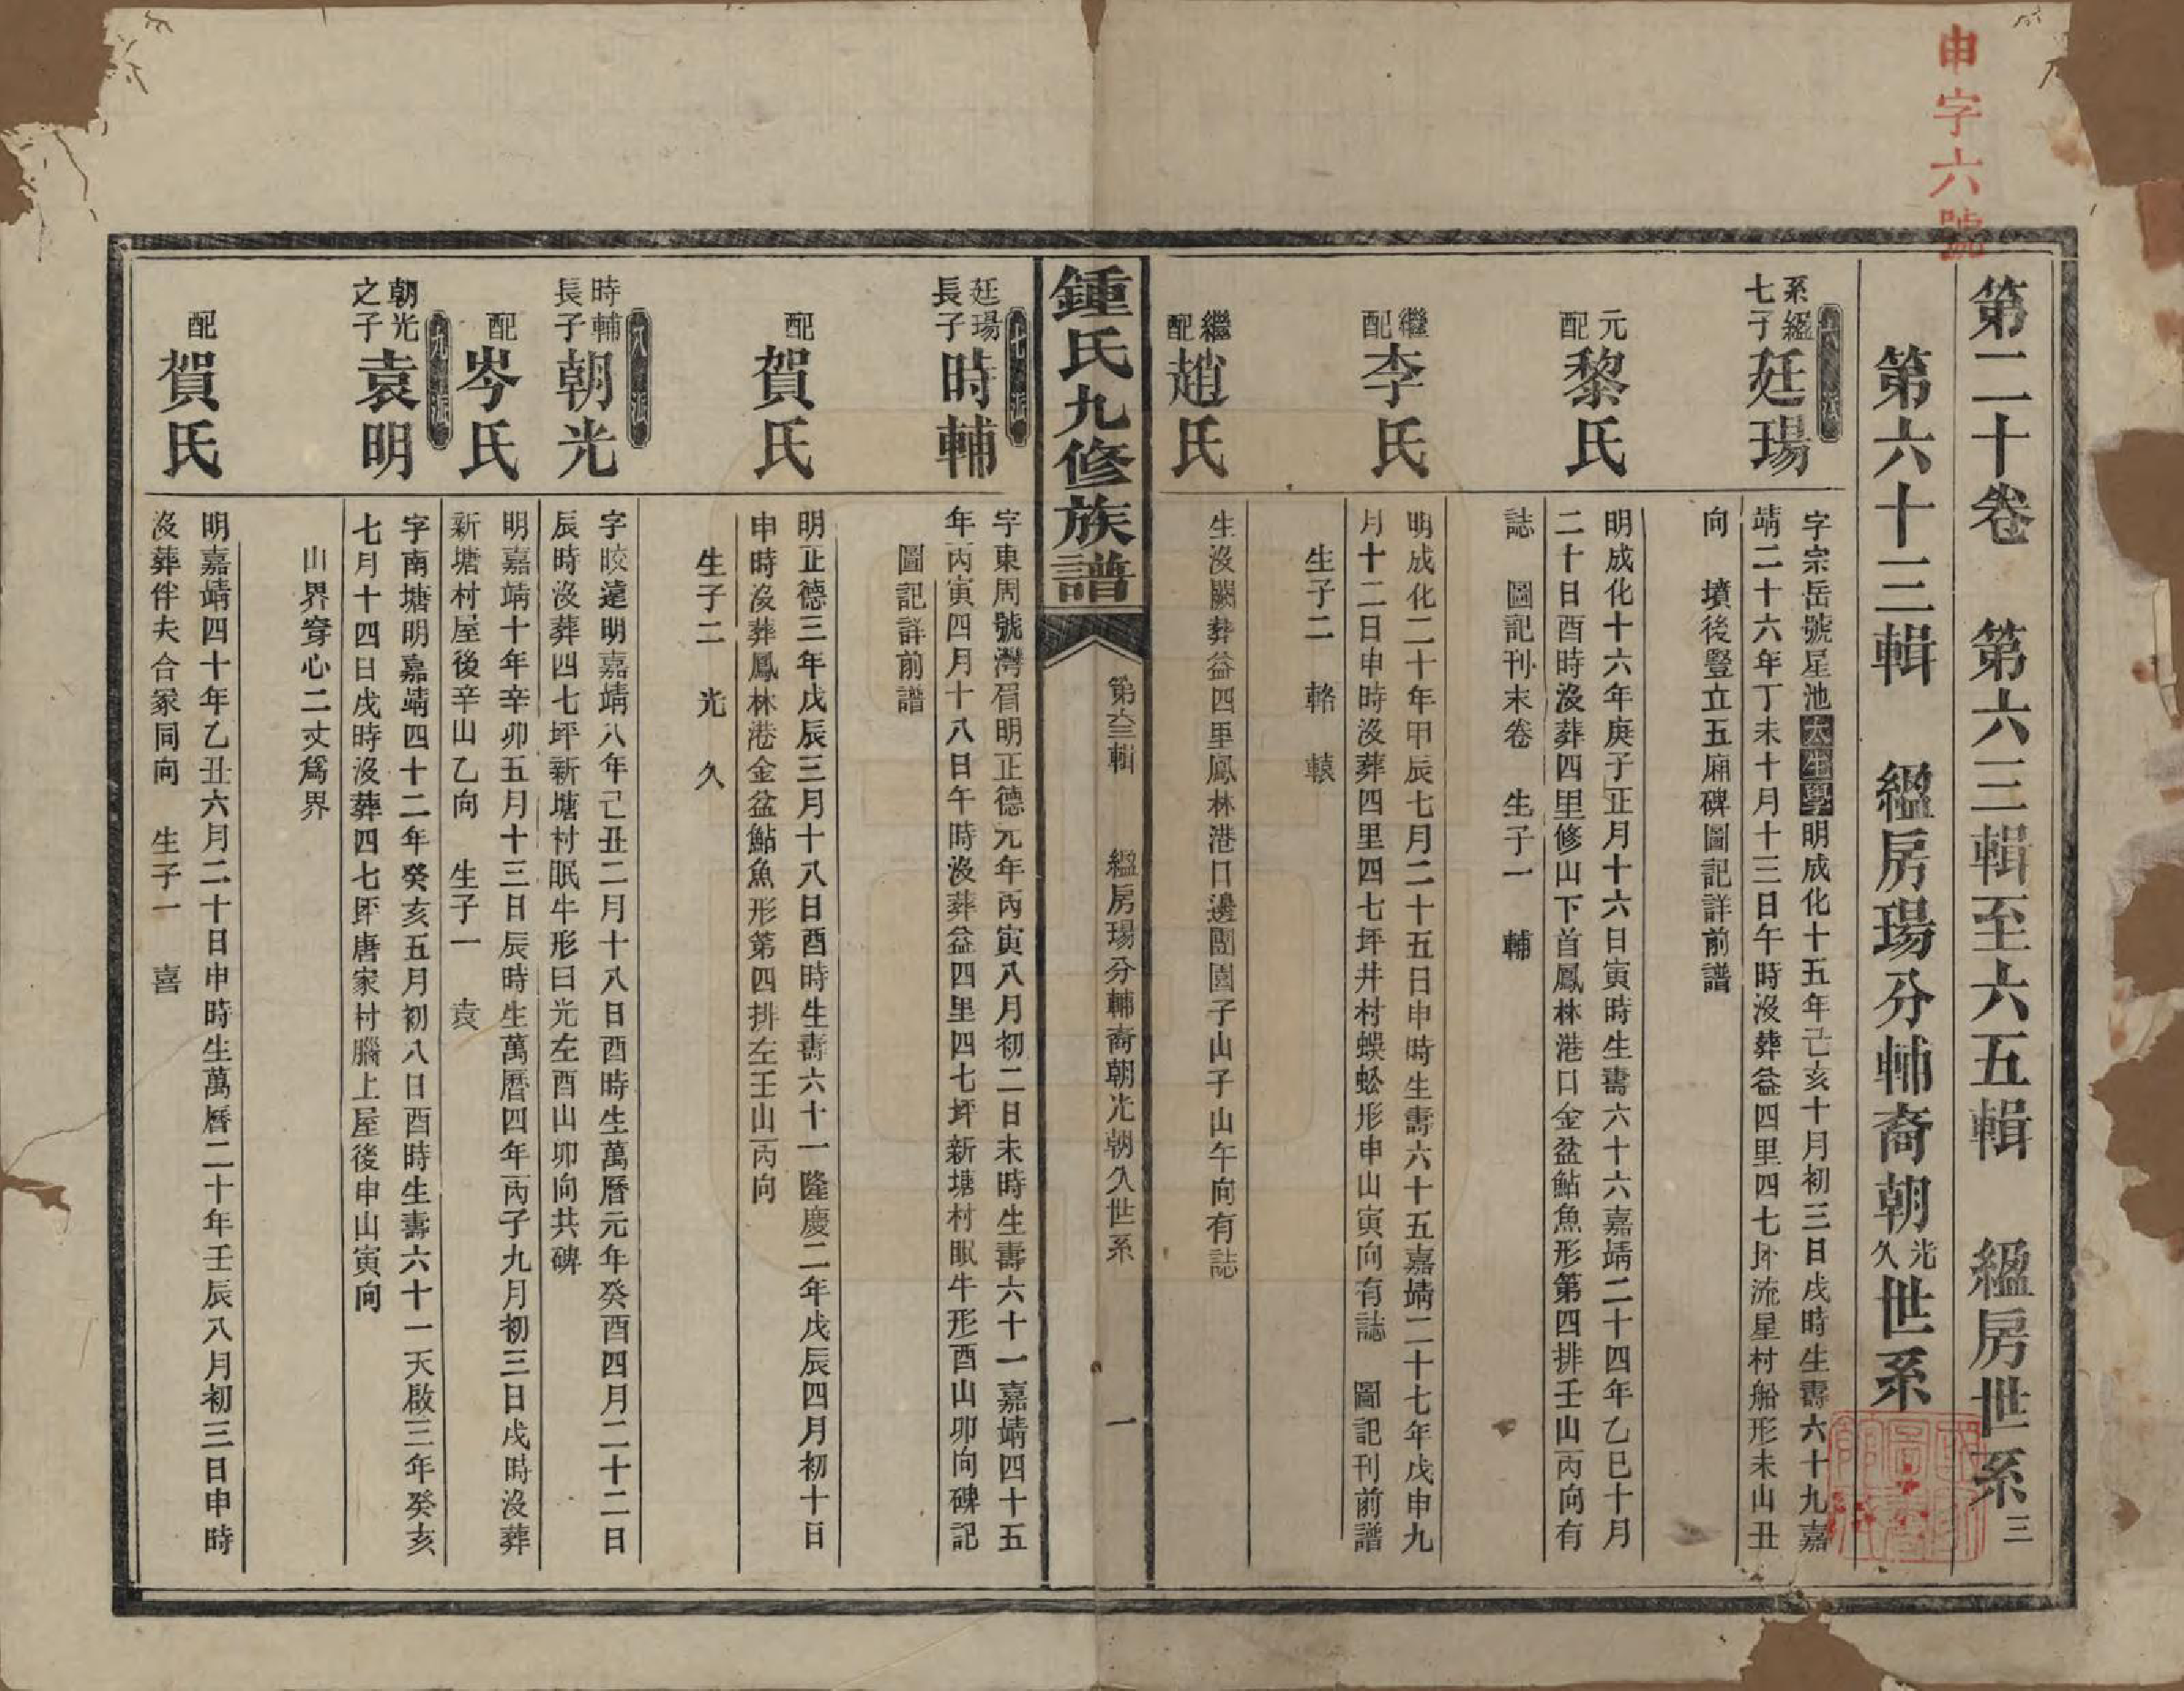 申字六號
第二十卷　第六三輯至六五輯　緼房世系三
第六十三輯　緼房瑒分輔裔朝光久世系
六派
系緼七子廷瑒
字宗岳號星池太學生明成化十五年己亥十月初三日戌時生壽六十九嘉
靖二十六年丁未十月十三日午時沒葬益四里四七坪流星村船形未山丑
向　墳後豎立五廂碑圖記詳前譜
元配黎氏
明成化十六年庚子正月十六日寅時生壽六十六嘉靖二十四年乙巳十月
二十日酉時沒葬四里修山下首鳳林港口金盆鮎魚形第四排壬山丙向有
誌　圖記刊末卷　生子一　輔
繼配李氏
明成化二十年甲辰七月二十五日申時生壽六十五嘉靖二十七年戊申九
月十二日申時沒葬四里四七坪井村蜈蚣形申山寅向有誌　圖記刊前譜
生子二　輅　轅
繼配趙氏
生沒闕葬益四里鳳林港口邊團園子山子山午向有誌
鍾氏九修族譜
第六三輯　緼房瑒分輔裔朝光朝久世系　一
七派
廷瑒長子時輔
字東周號灣眉明正德元年丙寅八月初二日未時生壽六十一嘉靖四十五
年丙寅四月十八日午時沒葬益四里四七坪新塘村眠牛形酉山卯向碑記
圖記詳前譜
配賀氏
明正德三年戊辰三月十八日酉時生壽六十一隆慶二年戊辰四月初十日
申時沒葬鳳林港金盆鮎魚形第四排左壬山丙向
生子二　光　久
八派
時輔長子朝光
字皎達明嘉靖八年己丑二月十八日酉時生萬曆元年癸酉四月二十二日
辰時沒葬四七坪新塘村眠牛形曰光左酉山卯向共碑
配岑氏
明嘉靖十年辛卯五月十三日辰時生萬曆四年丙子九月初三日戌時沒葬
新塘村屋後辛山乙向　生子一　袁
九派
朝光之子袁明
字南塘明嘉靖四十二年癸亥五月初八日酉時生壽六十一天啟三年癸亥
七月十四日戌時沒葬四七坪唐家村腦上屋後申山寅向
山界穿心二丈爲界
配賀氏
明嘉靖四十年乙丑六月二十日申時生萬曆二十年壬辰八月初三日申時
沒葬伴夫合冢同向　生子一　喜